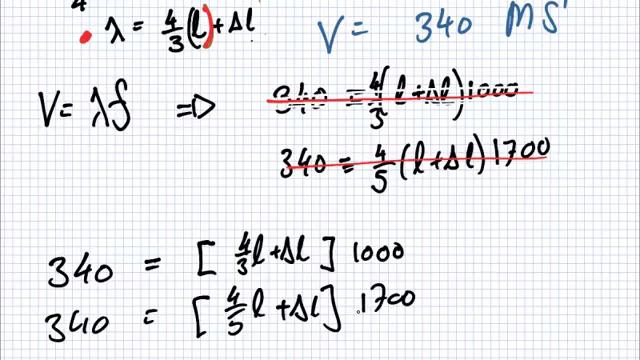 λ = 4/3(l)+Δl
V = 340 MS¹
V = λf ⇒ 340 = 4/3(l+Δl)1000
340 = 4/5(l+Δl)1700
340 = [4/3 l+Δl] 1000
340 = [4/5 l+Δl] 1700